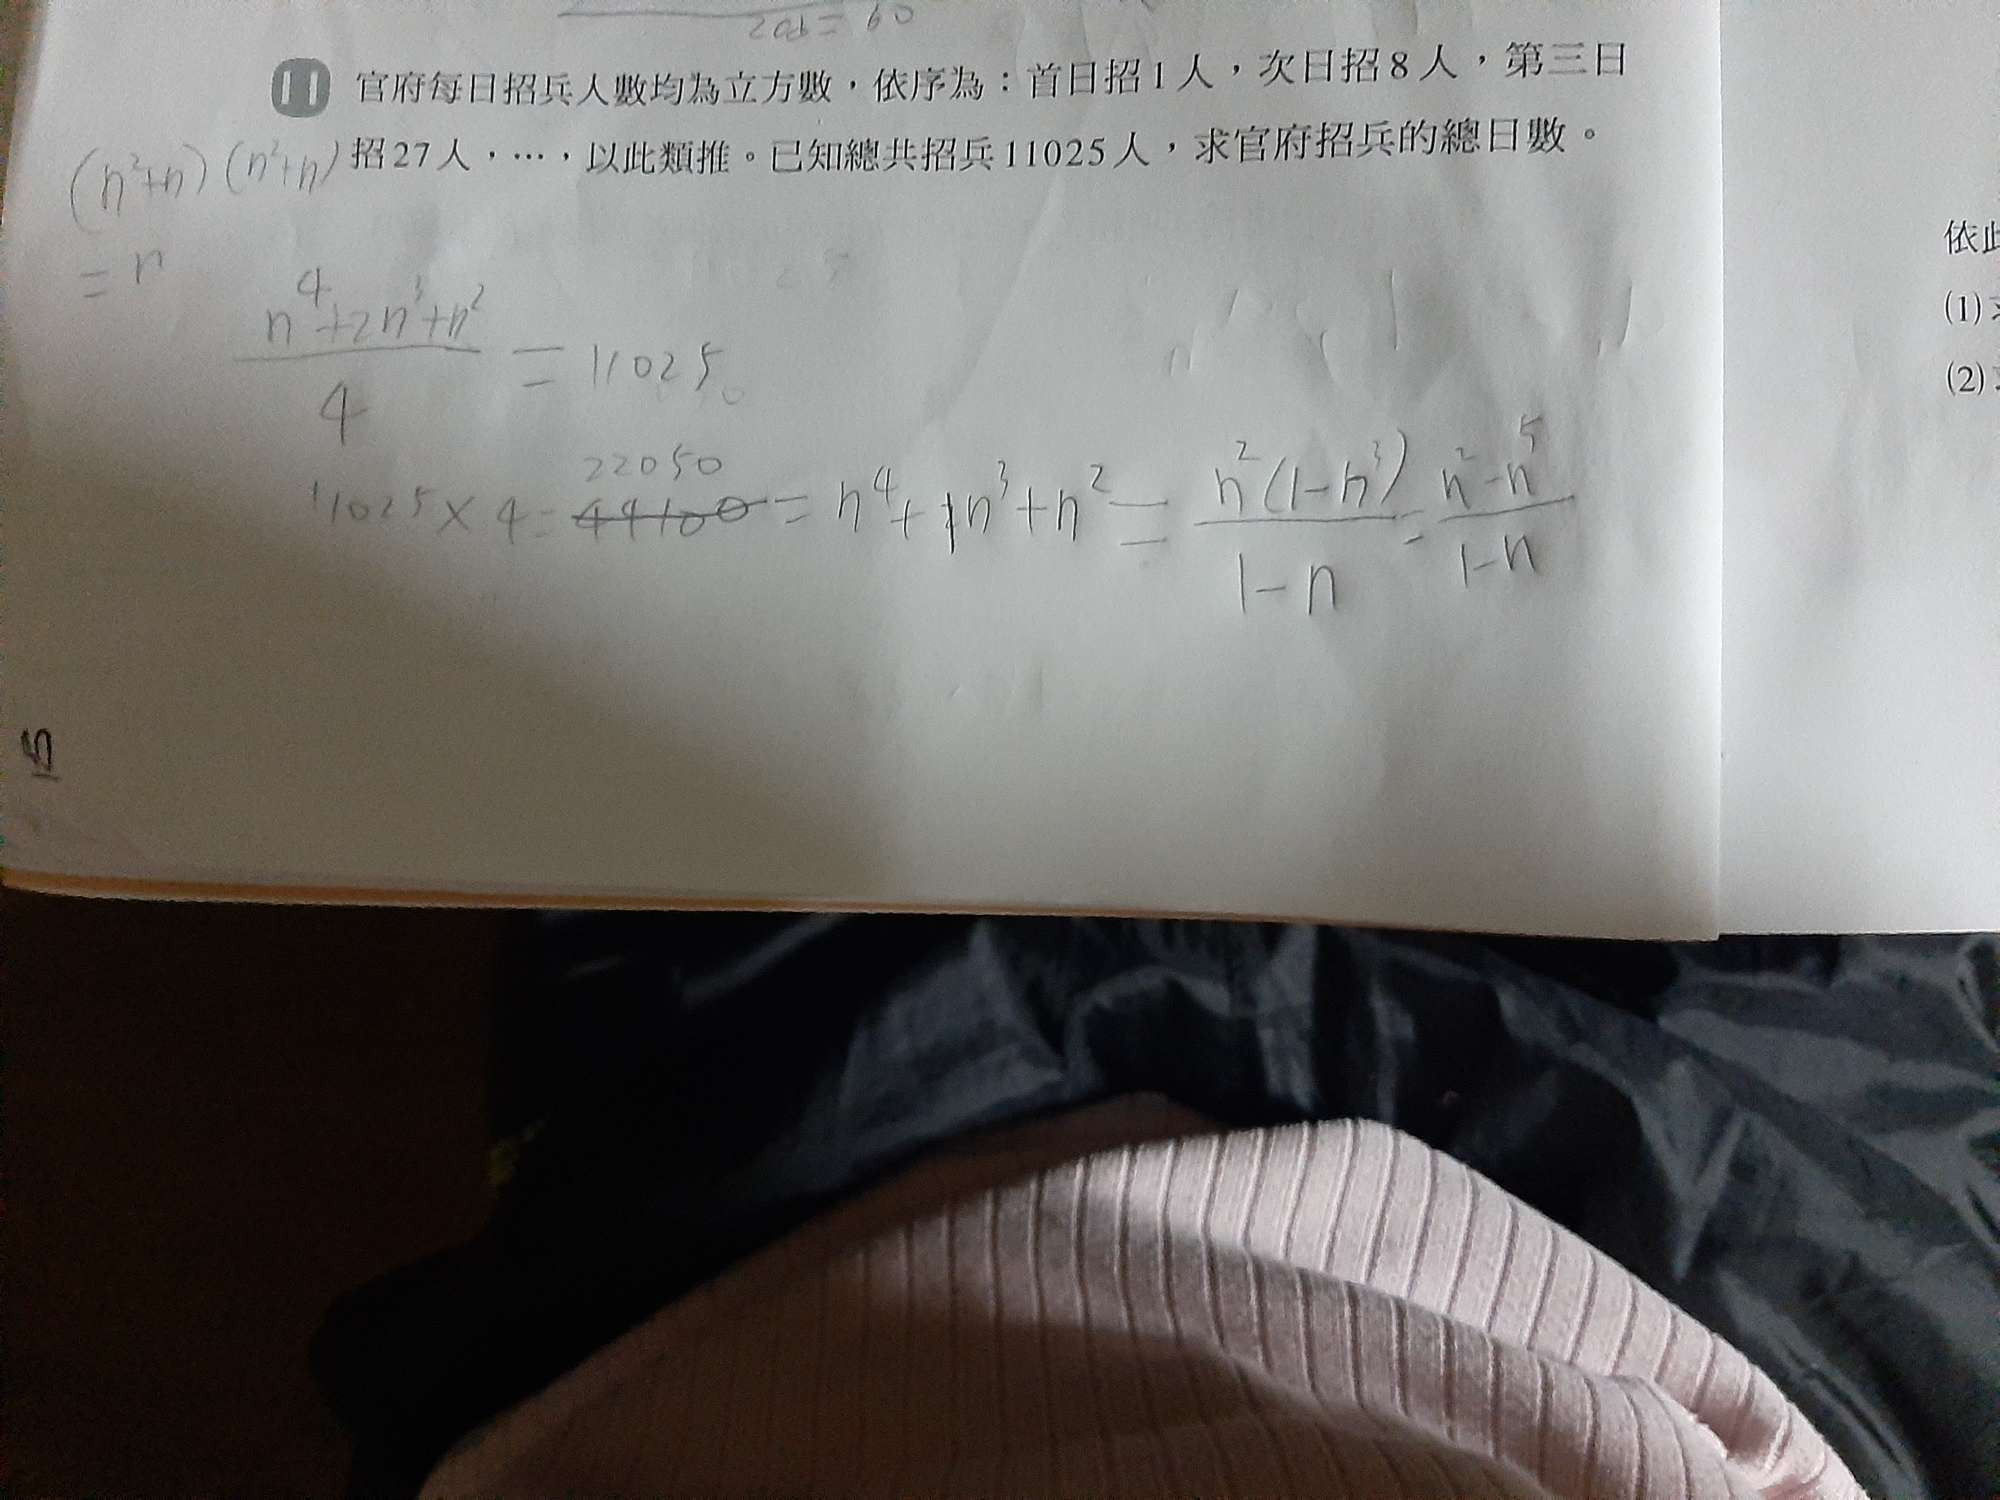 2ab = 60
11 官府每日招兵人數均為立方數，依序為：首日招1人，次日招8人，第三日
招27人，…，以此類推。已知總共招兵11025人，求官府招兵的總日數。
(n²+n)(n²+n)
= n
n⁴+2n³+n²
4
= 11025
22050
11025×4=44100=n⁴+1n³+n²=n²(1-n³)/1-n=n²-n⁵/1-n
依此
(1)
(2)